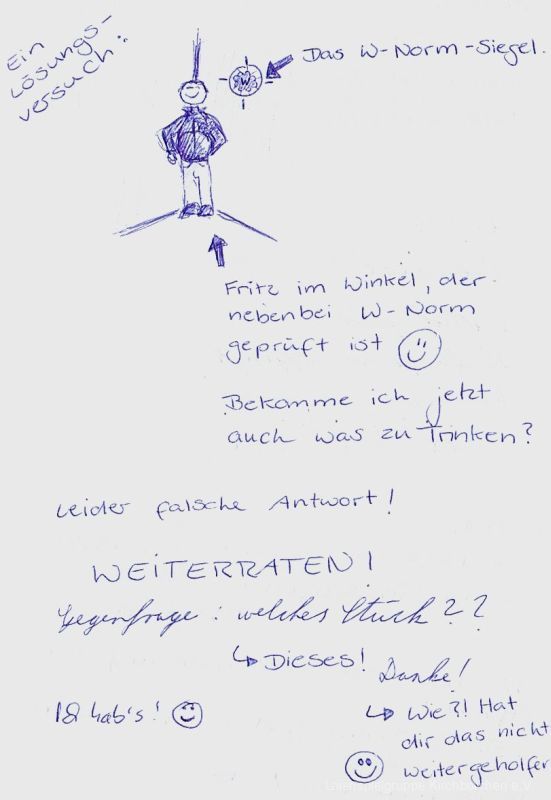 Ein
Lösungs-
versuch:
Das W-Norm-Siegel.
W
Fritz im Winkel, der
nebenbei W-Norm
geprüft ist
Bekomme ich jetzt
auch was zu Trinken?
Leider falsche Antwort!
WEITERRATEN!
Gegenfrage: welches Stück??
↳ Dieses!
Danke!
Ich hab's!
↳ Wie?! Hat
dir das nicht
weitergeholfen
Laienspielgruppe Kirchbrunnen e.V.